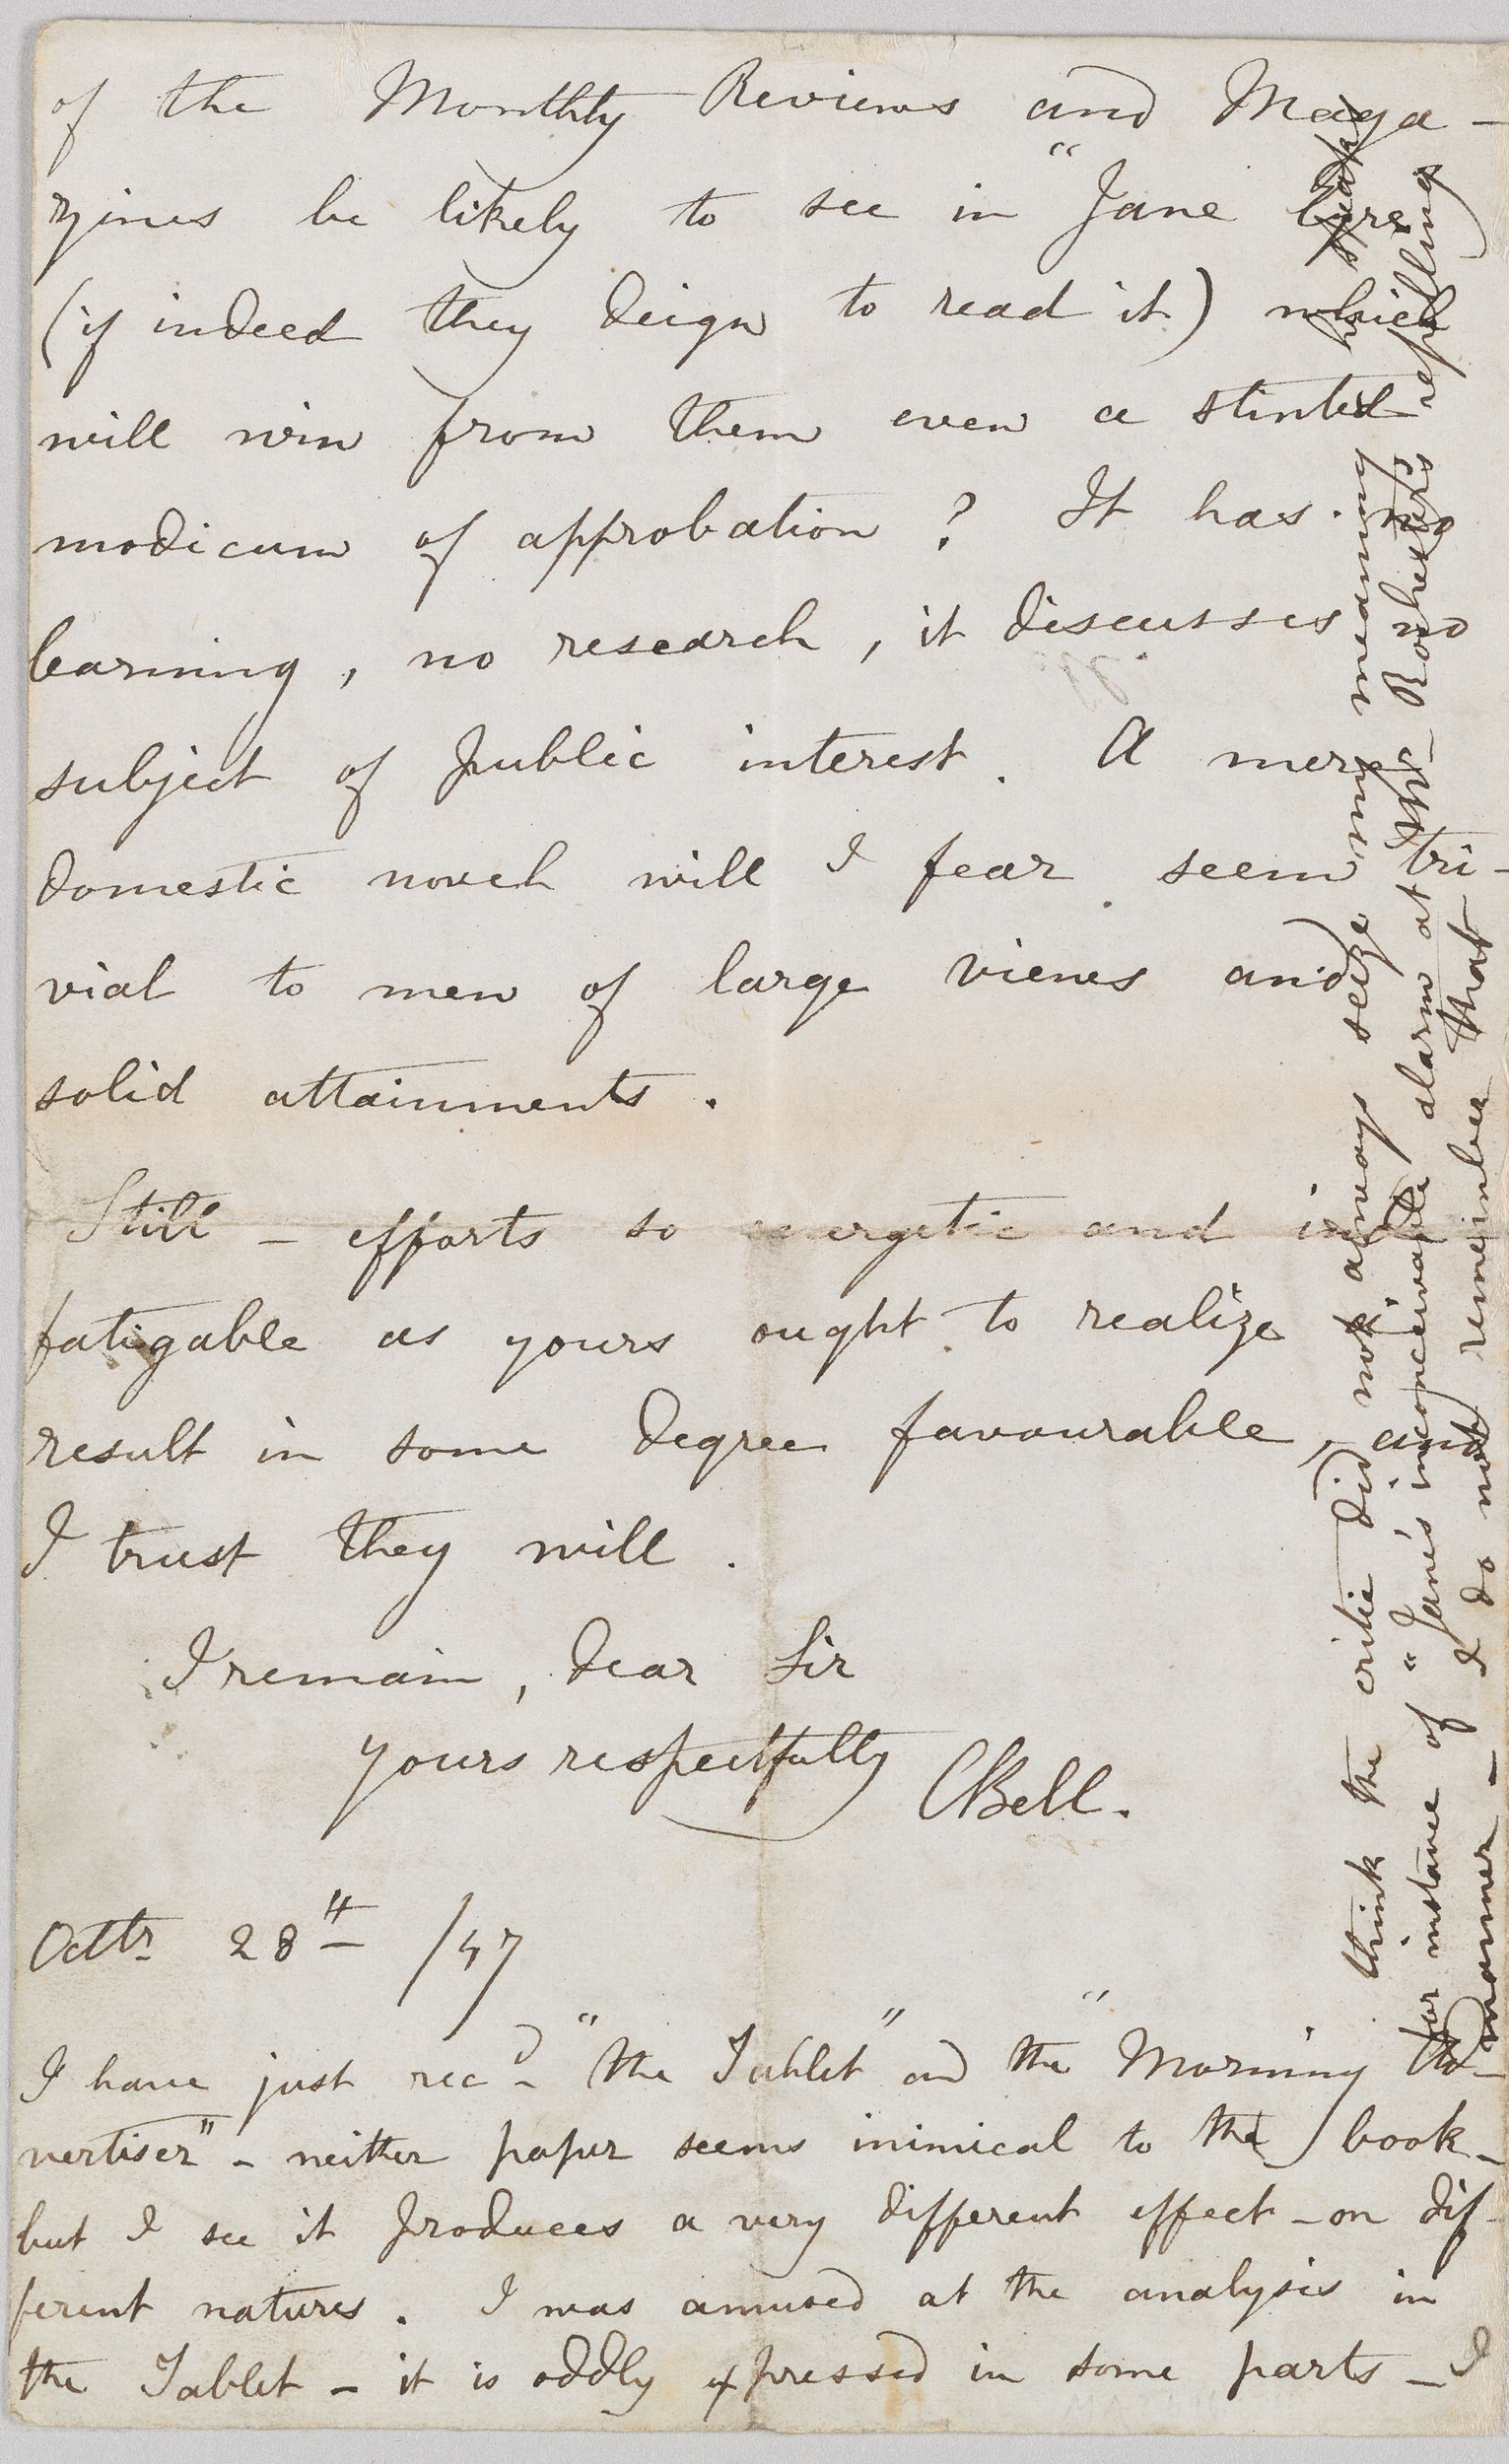 of the Monthly Reviews and Maga-
zines be likely to see in "Jane Eyre"
(if indeed they deign to read it) which
will win from them even a stinted
modicum of approbation? It has no
learning, no research, it discusses no
subject of public interest. A mere
domestic novel will I fear seem tri-
vial to men of large views and
solid attainments.
Still - efforts so energetic and inde
fatigable as yours ought to realize
result in some degree favourable, and
I trust they will.
I remain, dear Sir
yours respectfully CBell.
Octbr 28th /47
I have just recd "the Tablet" and the "Morning Ad-
vertiser" - neither paper seems inimical to the book -
but I see it produces a very different effect - on dif-
ferent natures. I was amused at the analysis in
the Tablet - it is oddly expressed in some parts - I
think the critic did not always seize my meaning - he speaks
for instance of "Jane's inconceivable alarm at Mr Rochester's repelling
manner - I do not remember that